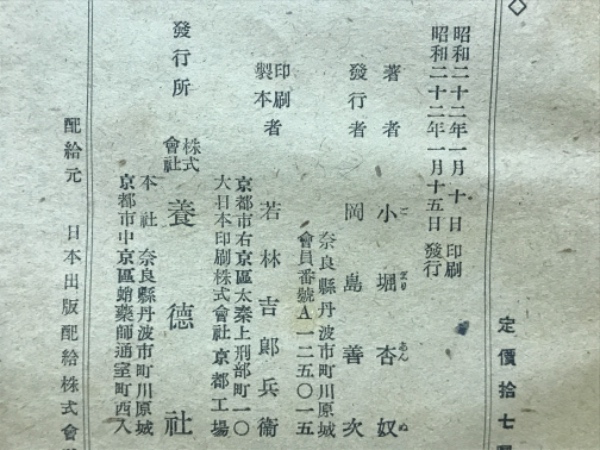 定價拾七
昭和二十二年一月十日 印刷
昭和二十二年一月十五日 發行
著者 小堀杏奴
こ ほり あん ぬ
發行者 岡島善次
奈良縣丹波市町川原城
會員番號A一二五〇一五
印刷製本者 若林吉郎兵衞
京都市右京區太秦上刑部町一〇
大日本印刷株式會社京都工場
發行所 株式會社 養德社
本社 奈良縣丹波市町川原城
京都市中京區蛸藥師通室町西入
配給元 日本出版配給株式會